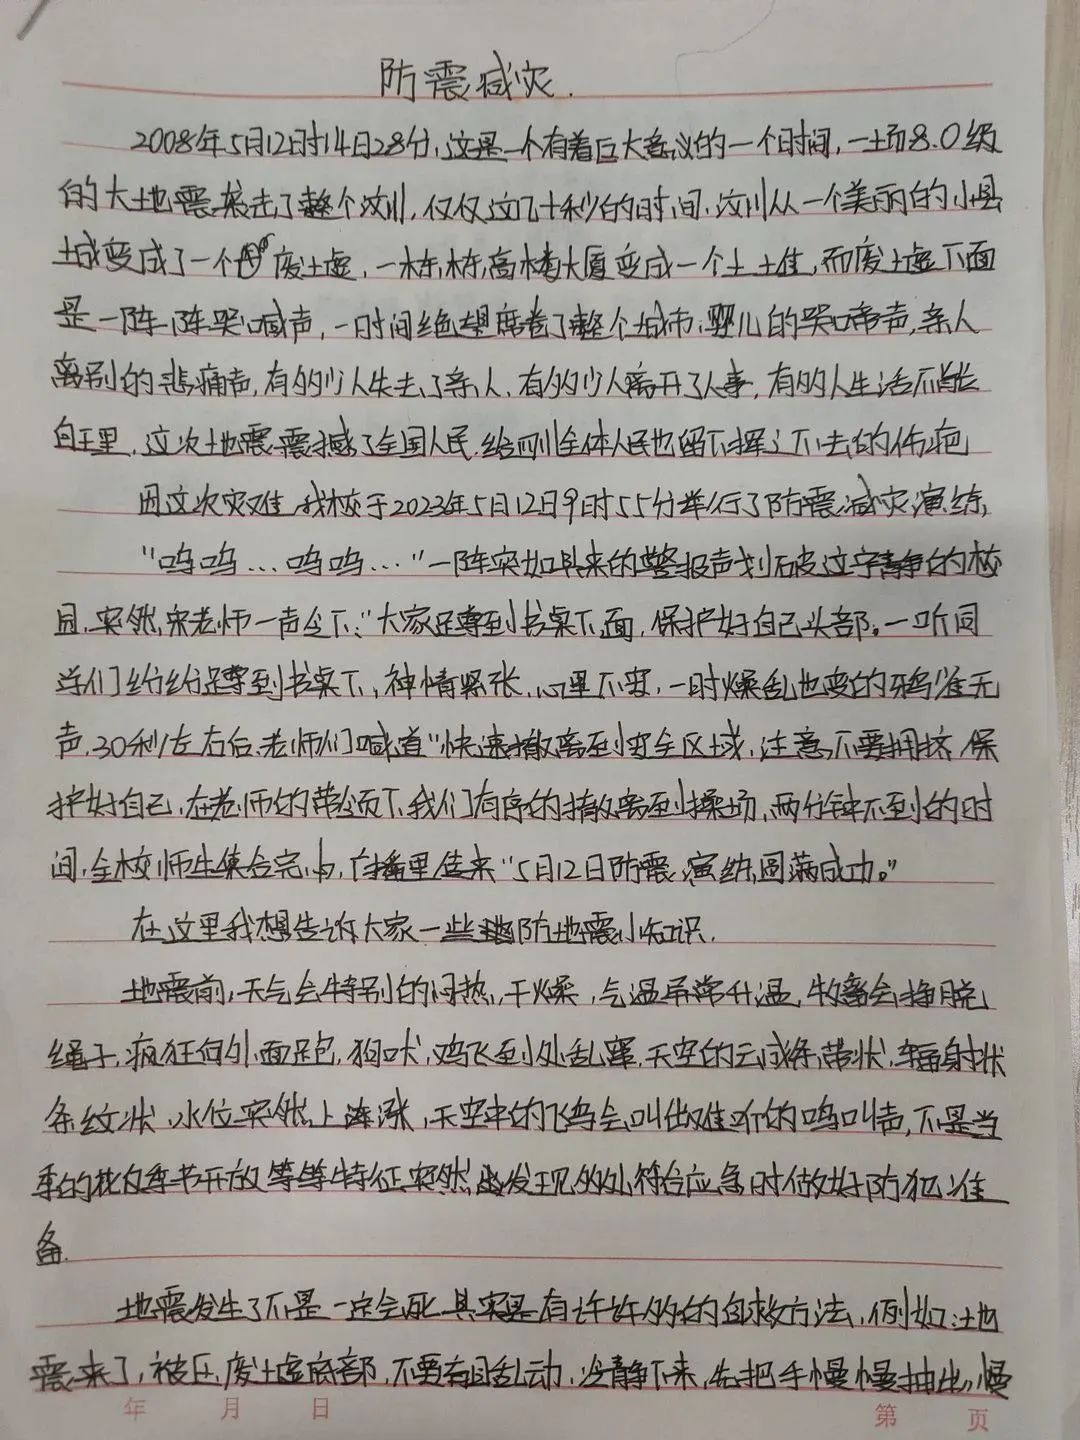 防震减灾.
2008年5月12时14日28分,这是一个有着巨大意义的一个时间,一场8.0级
的大地震袭击了整个汶川,仅仅这几十秒的时间,汶川从一个美丽的小县
城变成了一个废墟,一栋栋高楼大厦变成一个土堆,而废墟下面
是一阵阵哭喊声,一时间绝望席卷了整个城市,婴儿的哭啼声,亲人
离别的悲痛声,有多少人失去了亲人,有多少人离开了人事,有多人生活不能
自理,这次地震震撼了全国人民,给四川全体人民也留下挥之不去的伤疤
因这次灾难,我校于2023年5月12日9时55分举行了防震减灾演练,
“呜呜...呜呜...”一阵突如其来的警报声划破这宁静的校
园,突然,宋老师一声令下:“大家蹲到书桌下面,保护好自己头部。一听同
学们纷纷蹲到书桌下,神情紧张,心里不安,一时燥乱也变的鸦雀无
声,30秒左右后,老师们喊道“快速撤离到安全区域,注意不要拥挤,保
护好自己,在老师的带领下,我们有序的撤离到操场,两分钟不到的时
间,全校师生集合完毕,广播里传来“5月12日防震演练圆满成功。”
在这里我想告诉大家一些防地震小知识.
地震前,天气会特别的闷热,干燥,气温异常升温,牲畜会挣脱
绳子,疯狂向外面跑,狗吠,鸡飞到处乱窜,天空的云成条带状,辐射状
条纹状,水位突然上涨,天空中的飞鸟会叫做难听的鸣叫声,不是当
季的花反季节开放等等特征突然发现多处符合应急时做好防犯准
备.
地震发生了不是一定会死,其实是有许许多多的自救方法,例如:地
震来了,被压废墟底部,不要盲目乱动,冷静下来,先把手慢慢抽出,慢
年 月 日 第 页